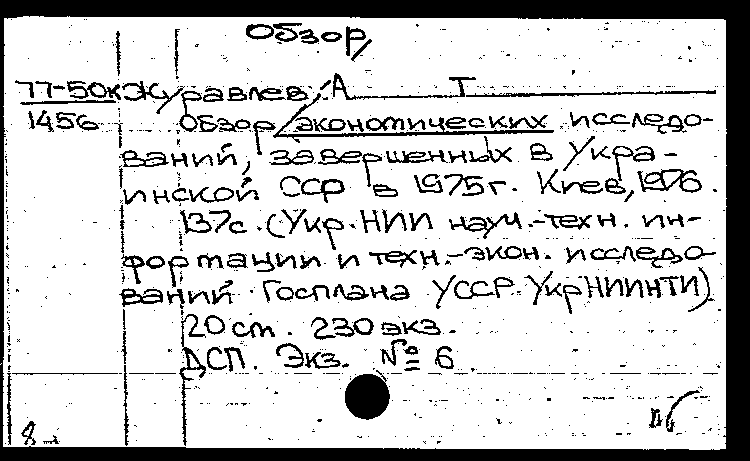 Обзор,
77-50к Журавлев, А Т
1456 Обзор экономических исследо-
ваний, завершенных в Укра-
инской ССР в 1975г. Киев, 1976.
137с. (Укр.НИИ науч.-техн. ин-
формации и техн.-экон. исследо-
ваний Госплана УССР. УкрНИИНТИ)
20 см. 230 экз.
ДСП. Экз. № 6
8